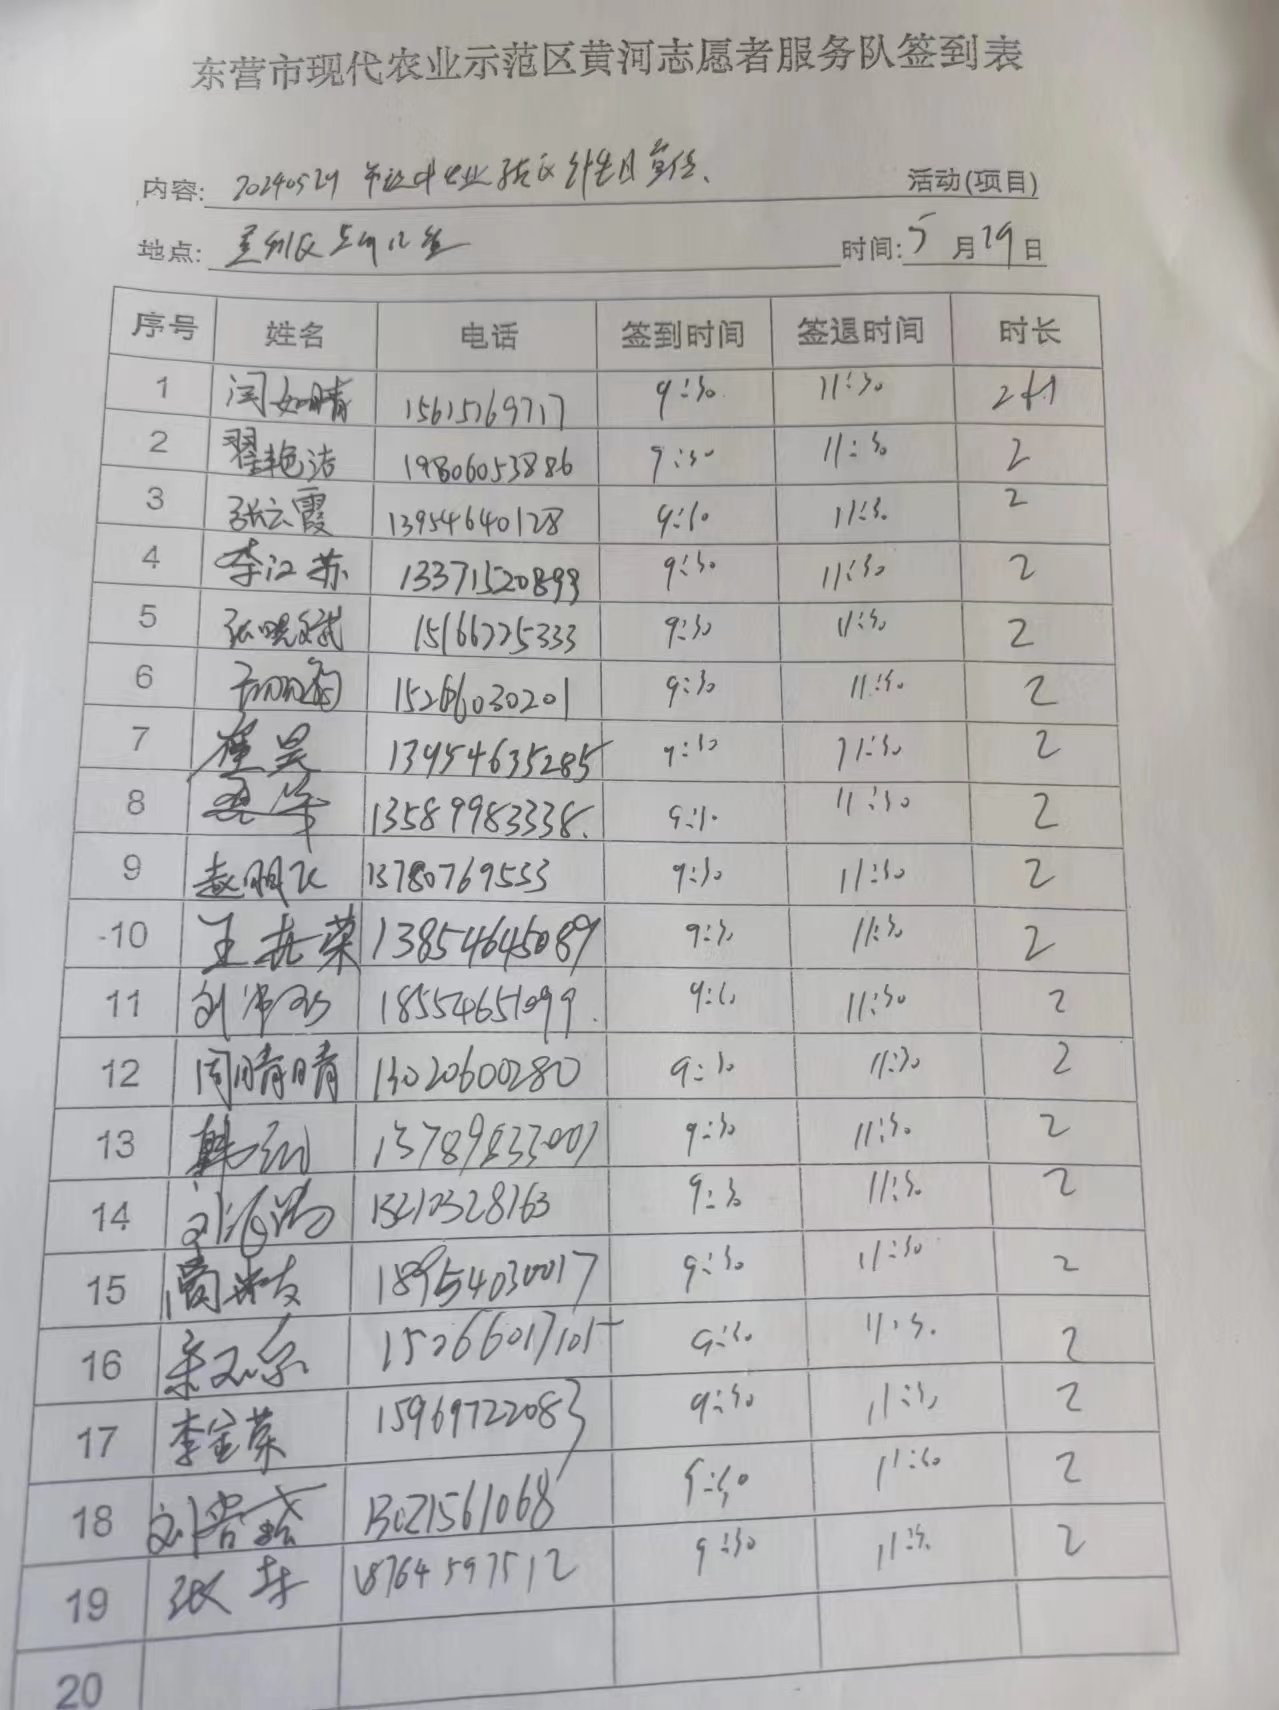 东营市现代农业示范区黄河志愿者服务队签到表
内容: 20240529 活动(项目)
地点: 时间: 5月29日
序号 姓名 电话 签到时间 签退时间 时长
1 闫如晴 15615769717 9:30 11:30 2
2 翟艳洁 19806053886 9:30 11:30 2
3 张云霞 13954640128 9:30 11:30 2
4 李江苏 13371520899 9:30 11:30 2
5 张晓斌 15166225333 9:30 11:30 2
6 15266030201 9:30 11:30 2
7 崔昊 13954635285 9:30 11:30 2
8 13589983338. 9:30 11:30 2
9 赵明飞 13780769533 9:30 11:30 2
10 王井荣 13854645089 9:30 11:30 2
11 18554651099. 9:30 11:30 2
12 周晴晴 13020600280 9:30 11:30 2
13 13789833007 9:30 11:30 2
14 9:30 11:30 2
15 18954030017 9:30 11:30 2
16 15266017101 9:30 11:30 2
17 李宝荣 15969722083 9:30 11:30 2
18 13021561068 9:30 11:30 2
19 18764597512 9:30 11:30 2
20